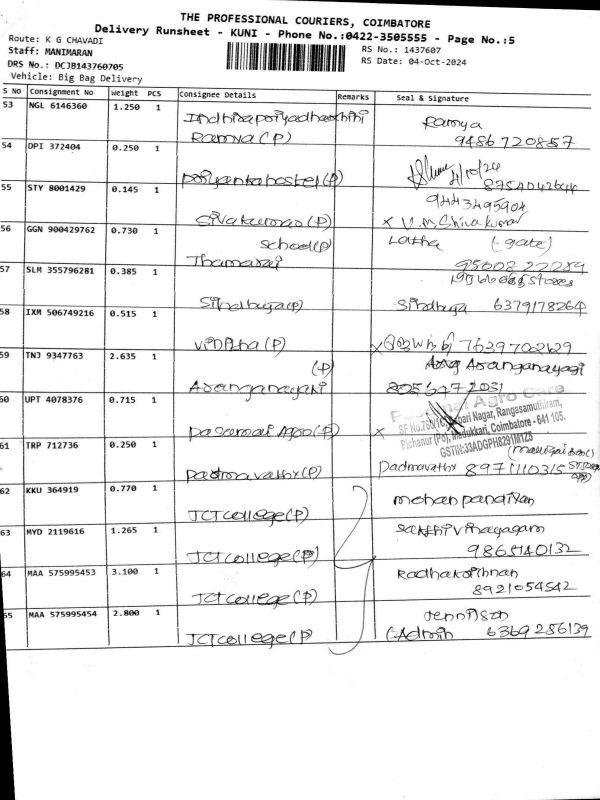 THE PROFESSIONAL COURIERS, COIMBATORE
Delivery Runsheet - KUNI - Phone No.:0422-3505555 - Page No.:5
Route: K G CHAVADI
Staff: MANIMARAN
DRS No.: DCJB143760705
Vehicle: Big Bag Delivery
RS No.: 1437607
RS Date: 04-Oct-2024
S No Consignment No Weight PCS Consignee Details Remarks Seal & Signature
53 NGL 6146360 1.250 1
Ramya (P) Ramya
9486720857
54 DPI 372404 0.250 1
4/10/24
(P) 8754042644
55 STY 8001429 0.145 1
9443495904
Sivakumar (P) x V.M Shivakumar
56 GGN 900429762 0.730 1
School (P) Latha (-gate)
Thamarai 9500822289
57 SLM 355796281 0.385 1
Sindhuja (P) Sindhuja 6379178264
58 IXM 506749216 0.515 1
(P) x 7639702129
59 TNJ 9347763 2.635 1
(P) Aranganayagi
Aranganayaki
60 UPT 4078376 0.715 1
Agro (P) x
Agro Care
Nagar, Rangasamuthiram,
Pichanur (Po), Madukkari, Coimbatore - 641 105.
GSTIN:33ADGPH8291M1ZS
61 TRP 712736 0.250 1
Padmavathy (P) Padmavathy 8971110315
62 KKU 364919 0.770 1
JCT college (P) mohan pandiyan
63 MYD 2119616 1.265 1
JCT college (P) Sakthi Vinayagam
9865140132
64 MAA 575995453 3.100 1
JCT college (P) Radhakrishnan
8921054542
65 MAA 575995454 2.800 1
JCT college (P) Jennison
(-Admin 6369286139